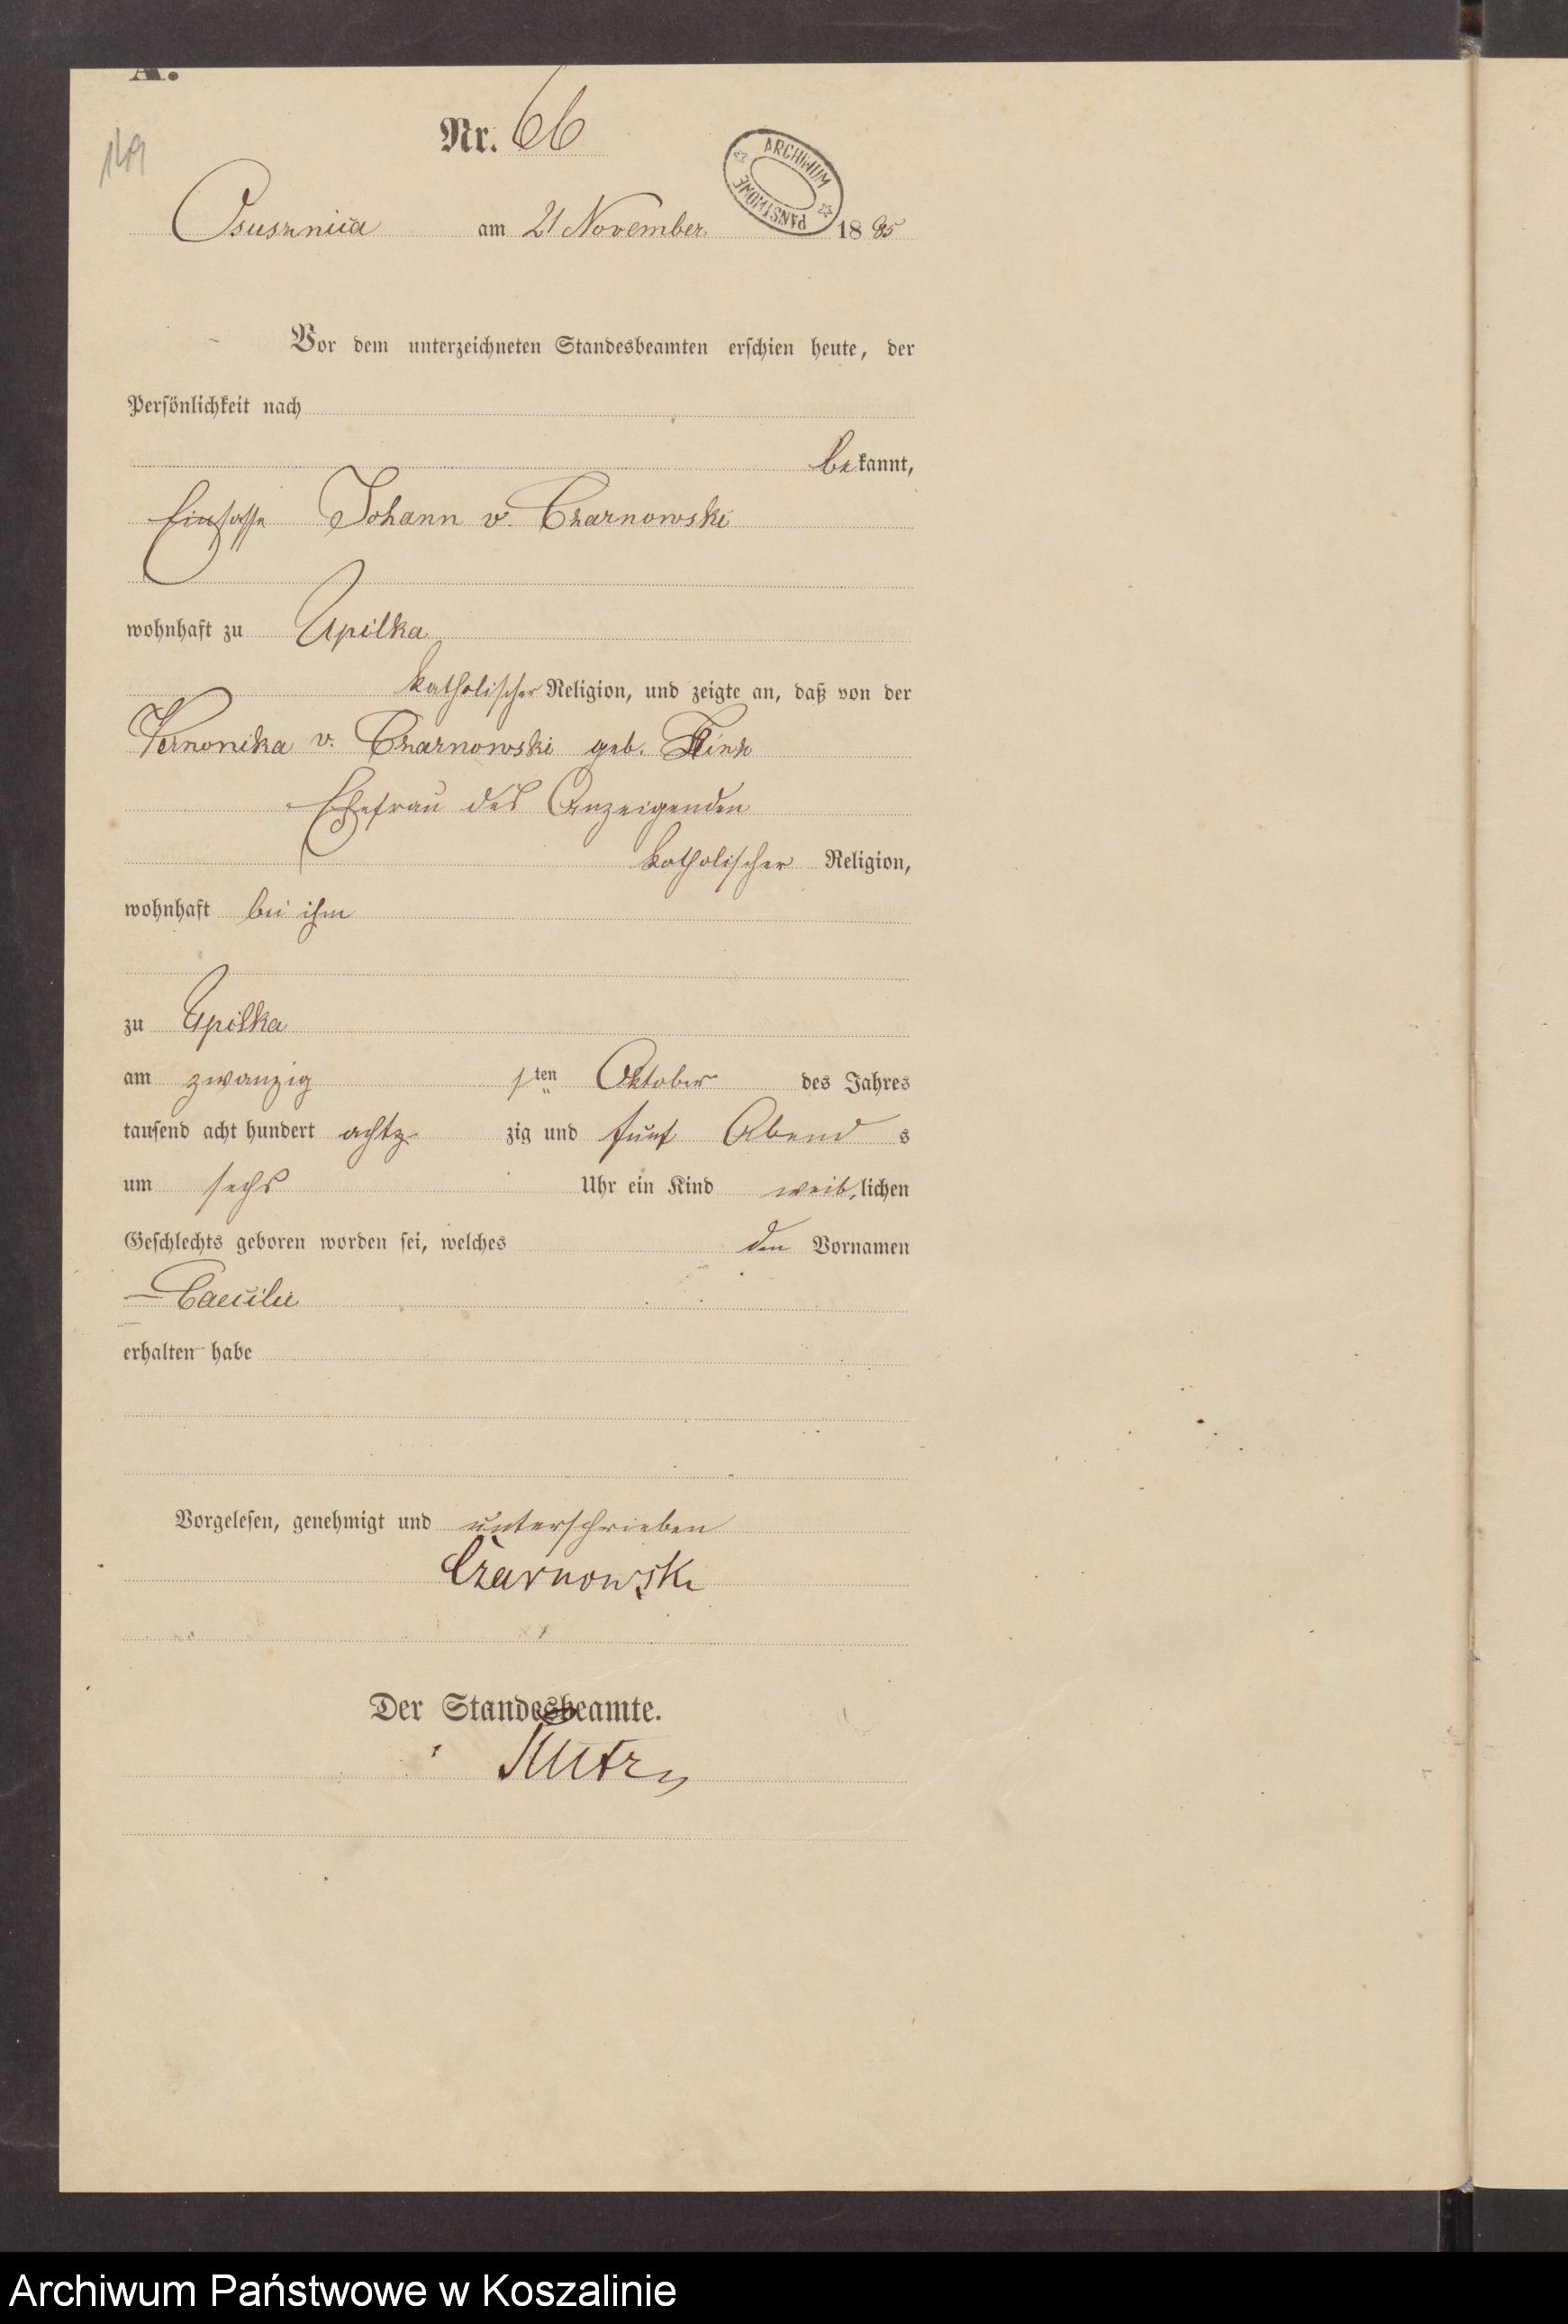 A.
Nr. 66
149
ARCHIWUM PAŃSTWOWE
Osusznica am 21 November 1885
Vor dem unterzeichneten Standesbeamten erschien heute, der
Persönlichkeit nach
bekannt,
Einsasse Johann v. Czarnowski
wohnhaft zu Upilka
katholischer Religion, und zeigte an, daß von der
Vernonika v. Czarnowski geb.
Ehefrau des Anzeigenden
katholischer Religion,
wohnhaft bei ihm
zu Upilka
am zwanzig ten Oktober des Jahres
tausend acht hundert achtz zig und fünf Abend s
um sechs Uhr ein Kind weiblichen
Geschlechts geboren worden sei, welches den Vornamen
Caecilie
erhalten habe
Vorgelesen, genehmigt und unterschrieben
Czarnowski
Der Standesbeamte.
Archiwum Państwowe w Koszalinie